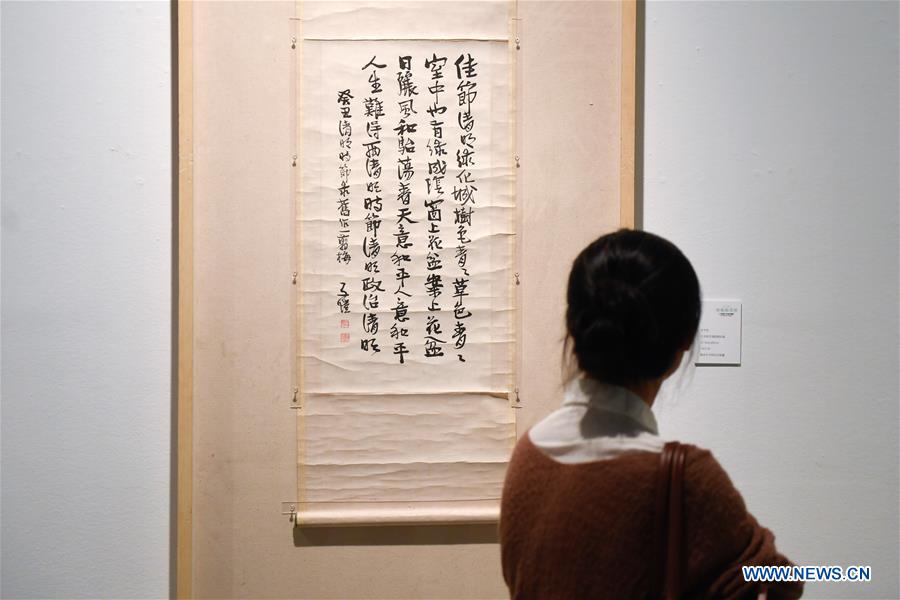 佳節清明綠化城樹色青〻草色青〻
室中也有綠成陰窗上花盆案上花盆
日麗風和駘蕩春天意和平人意和平
人生難得兩清明時節清明政治清明
癸丑清明時節錄舊作一翦梅 子愷
WWW.NEWS.CN